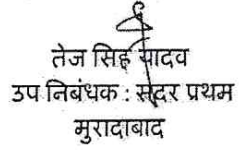 तेज सिंह यादव
उप निबंधक : सदर प्रथम
मुरादाबाद